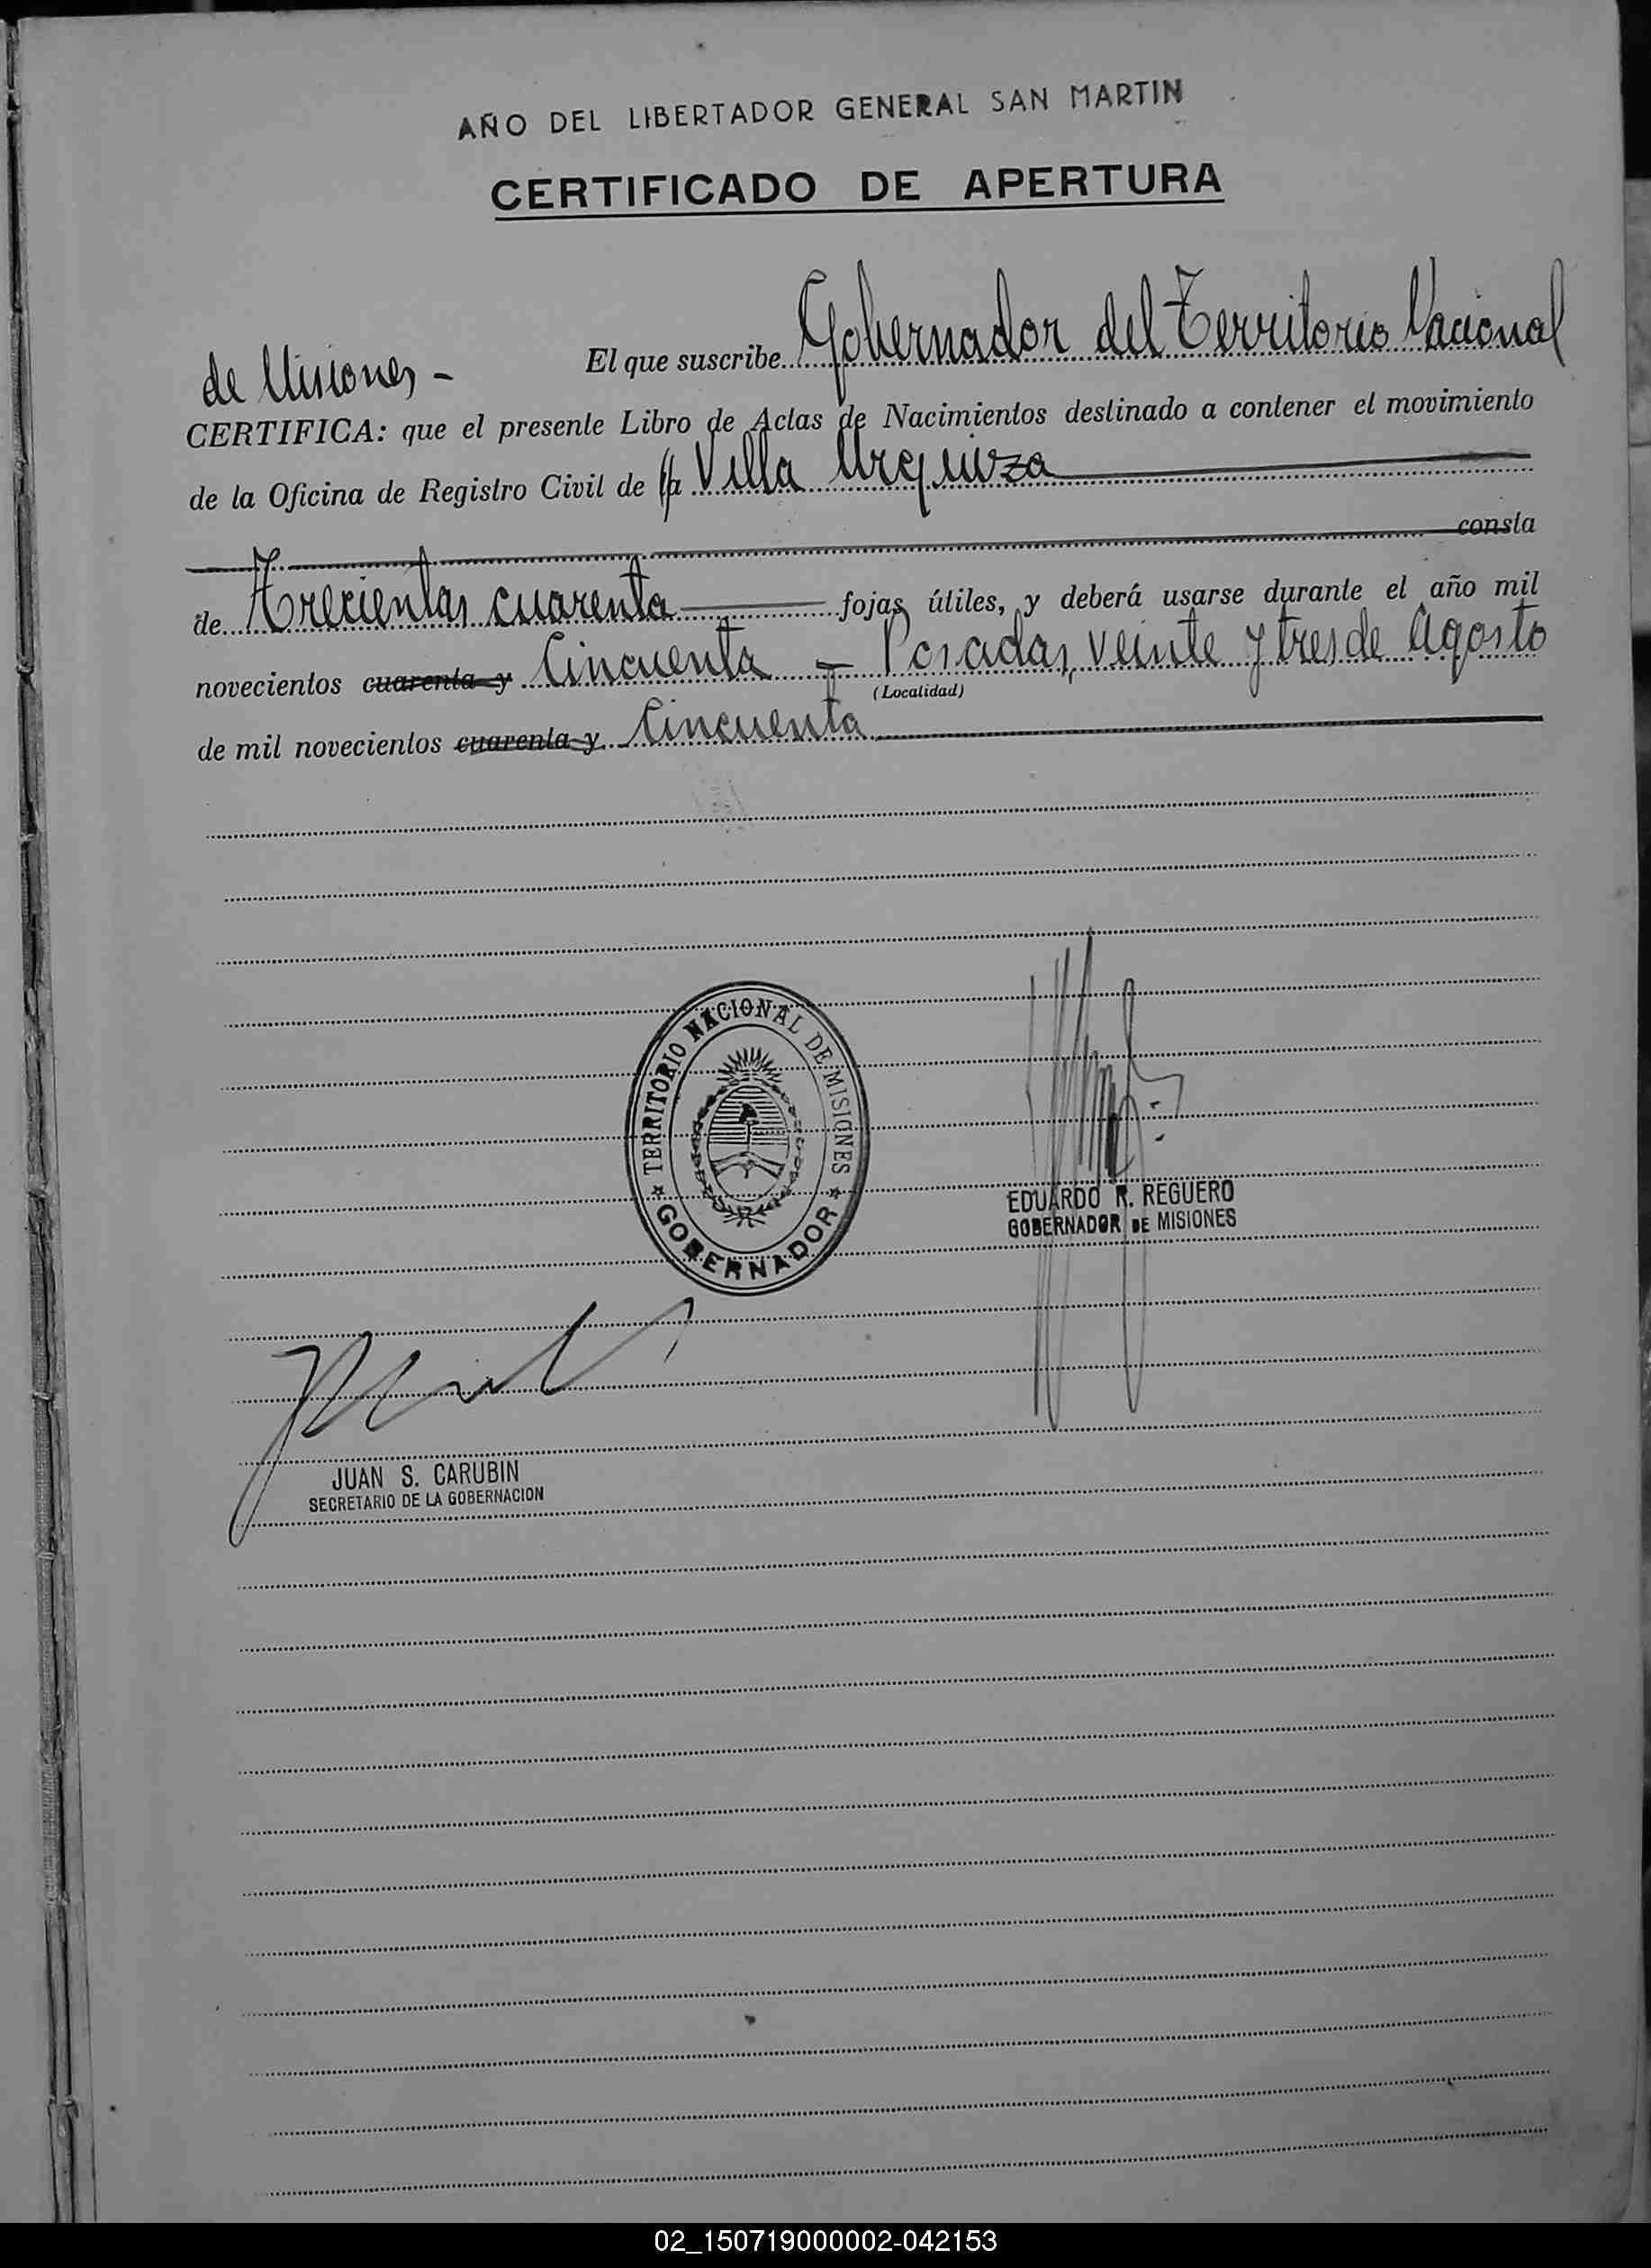 AÑO DEL LIBERTADOR GENERAL SAN MARTIN
CERTIFICADO DE APERTURA
El que suscribe Gobernador del Territorio Nacional
de Misiones -
CERTIFICA: que el presente Libro de Actas de Nacimientos destinado a contener el movimiento
de la Oficina de Registro Civil de la Villa Urquiza
consta
de Trecientas cuarenta fojas útiles, y deberá usarse durante el año mil
novecientos cuarenta y Cincuenta - Posadas, veinte y tres de Agosto
(Localidad)
de mil novecientos cuarenta y Cincuenta
TERRITORIO NACIONAL DE MISIONES
GOBERNADOR
EDUARDO R. REGUERO
GOBERNADOR DE MISIONES
JUAN S. CARUBIN
SECRETARIO DE LA GOBERNACION
02_150719000002-042153